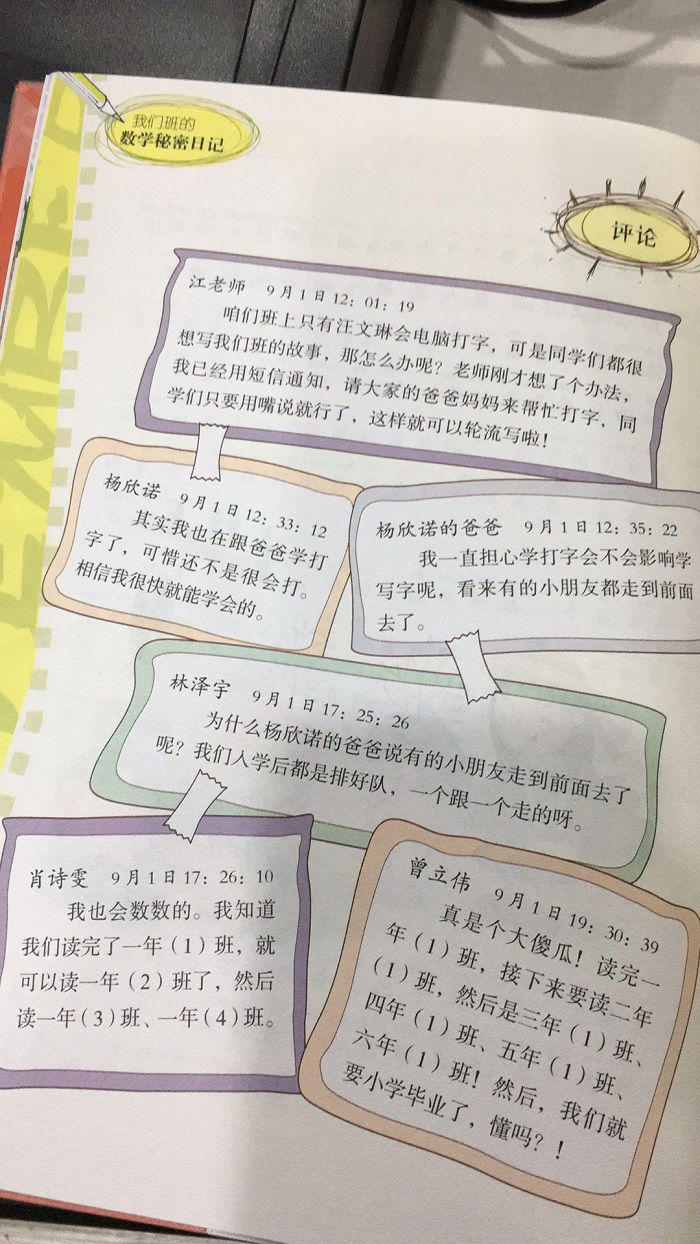 我们班的
数学秘密日记
评论
江老师 9月1日12：01：19
咱们班上只有汪文琳会电脑打字，可是同学们都很
想写我们班的故事，那怎么办呢？老师刚才想了个办法，
我已经用短信通知，请大家的爸爸妈妈来帮忙打字，同
学们只要用嘴说就行了，这样就可以轮流写啦！
杨欣诺 9月1日12：33：12
其实我也在跟爸爸学打
字了，可惜还不是很会打。
相信我很快就能学会的。
杨欣诺的爸爸 9月1日12：35：22
我一直担心学打字会不会影响学
写字呢，看来有的小朋友都走到前面
去了。
林泽宇 9月1日17：25：26
为什么杨欣诺的爸爸说有的小朋友走到前面去了
呢？我们入学后都是排好队，一个跟一个走的呀。
肖诗雯 9月1日17：26：10
我也会数数的。我知道
我们读完了一年（1）班，就
可以读一年（2）班了，然后
读一年（3）班、一年（4）班。
曾立伟 9月1日19：30：39
真是个大傻瓜！读完一
年（1）班，接下来要读二年
（1）班，然后是三年（1）班、
四年（1）班、五年（1）班、
六年（1）班！然后，我们就
要小学毕业了，懂吗？！